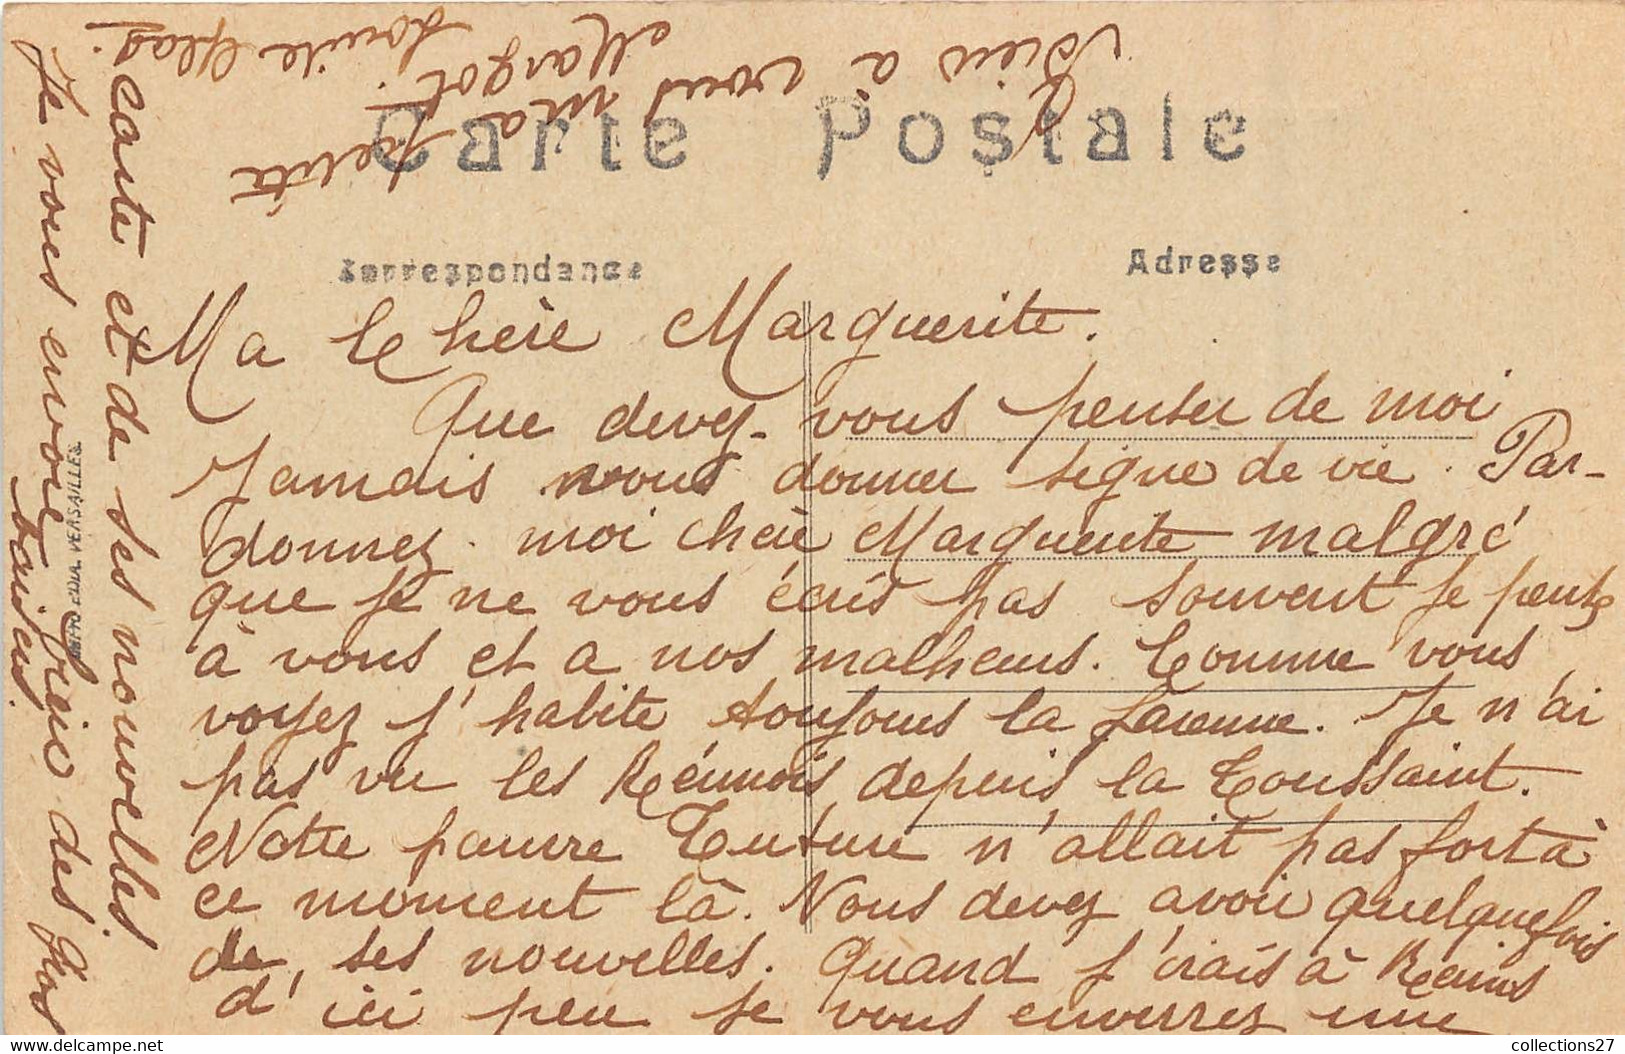 Carte Postale
Correspondance
Adresse
Ma Chère Marguerite.
Que devez-vous penser de moi
Jamais vous donner signe de vie. Par-
donnez-moi chère Marguerite malgré
que je ne vous écris pas souvent je pense
à vous et a nos malheurs. Comme vous
voyez j'habite toujours la Varenne. Je n'ai
pas vu les Rémois depuis la Toussaint.
Notre pauvre Tuture n'allait pas fort à
ce moment là. Vous devez avoir quelquefois
de ses nouvelles. Quand j'irais à Reims
d'ici peu je vous enverrez une
carte et de ses nouvelles.
Je vous envoie bien des gros
baisers.
Bien à vous ma petite
Margot.
IMPR. EDIA VERSAILLES
collections27